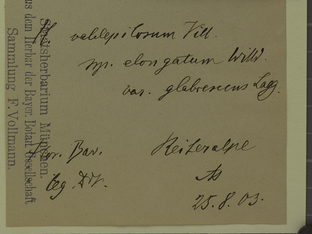 H. valdepilosum Vill.
ssp. elongatum Willd.
var. glabrescens
Flor. Bav. Reiteralpe
leg.
25.8.03.
Staatsherbarium München.
Aus dem Herbar der Bayer. Botan. Gesellschaft
Sammlung F. Vollmann.